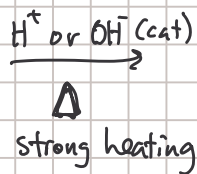 H⁺ or OH⁻ (cat)
Δ
strong heating